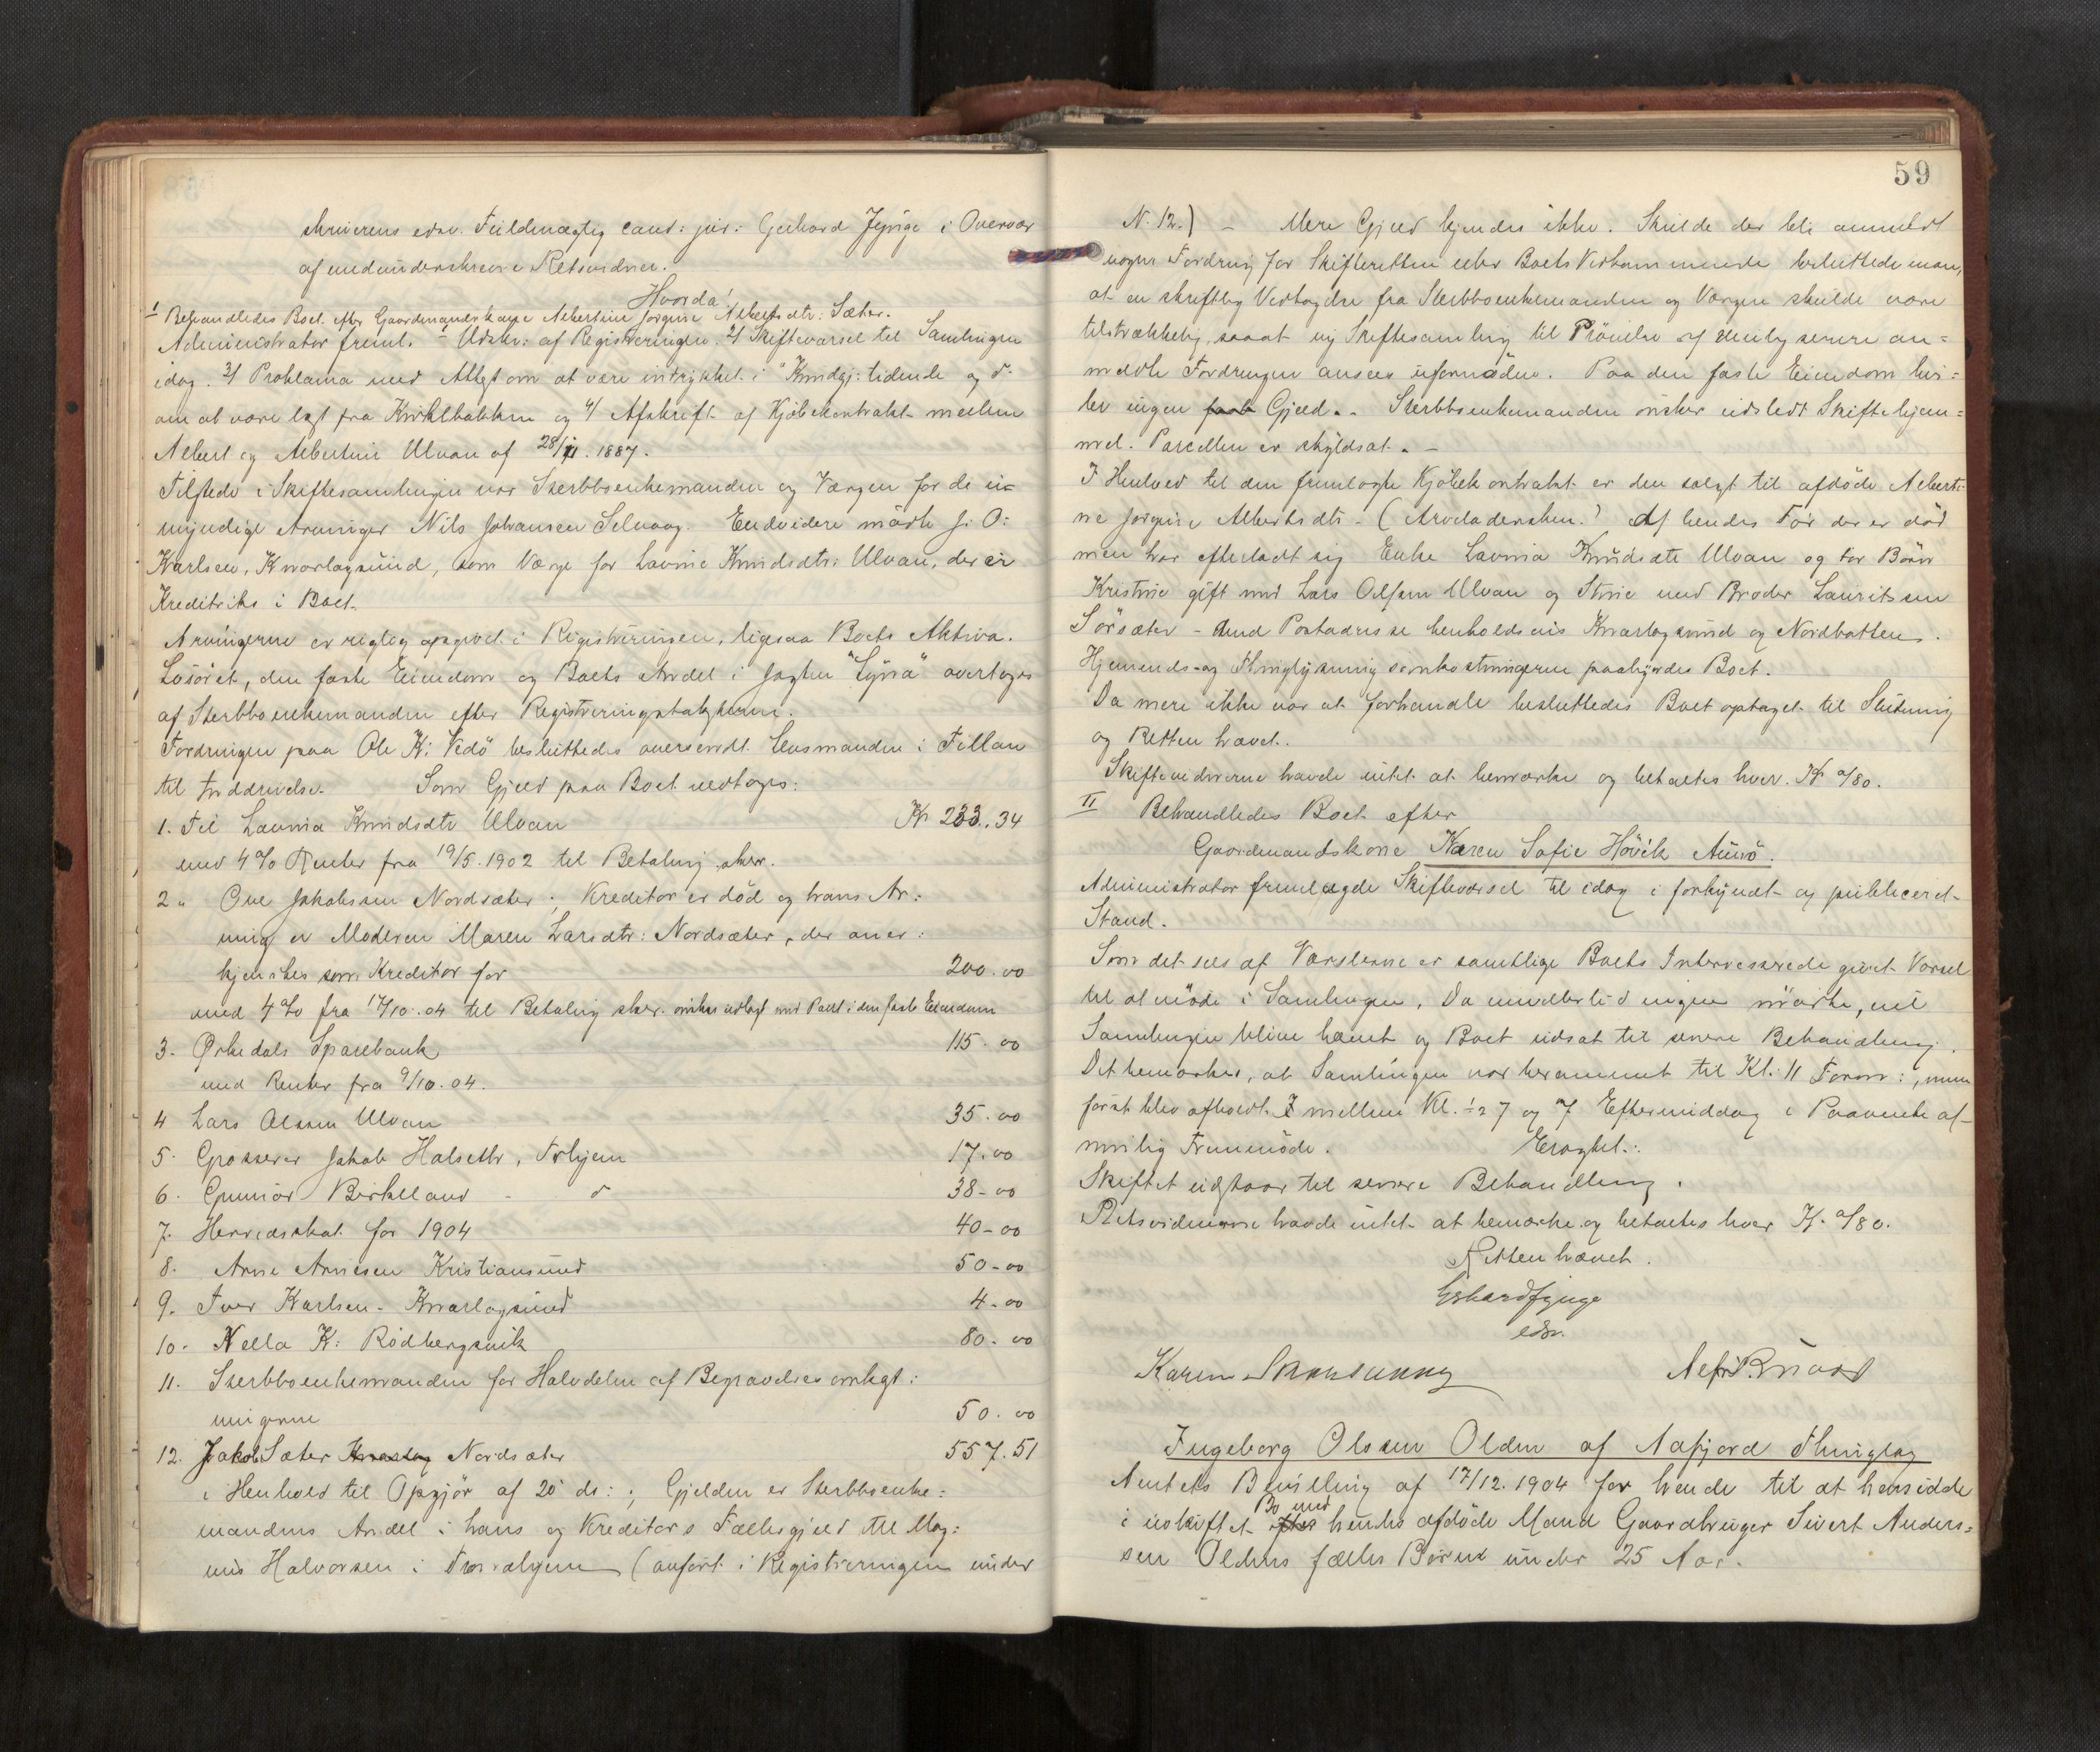 skriverens edsv. Fuldmægtig cand: jur: Gerhard Jynge i Overvær
af medunderskrevne Retsvidner.
Hvorda!
I Behandledes Boet efter Gaardmandskone Albertine Jorgine Albertsdtr: Sæter.
Administrator freml. - Udskr: af Registreringen. 2/ Skiftevarsel til Samlingen
idag. 3/ Proklama med Attest om at være indrykket i "Kundgj: tidende og do
om at være læst fra Kirkebakken og 4/ Afskrift af Kjöbekontrakt mellem
Albert og Albertine Ulvan af 28/11. 1887.
Tilstede i Skiftesamlingen var Sterbboenkemanden og Værgen for de u=
myndige Arvinger Nils Johansen Selvaag. Endvidere mödte J. O:
Karlsen, Kvarlagsund, som Værge for Lavine Knudsdtr: Ulvan, der er
Kreditrike i Boet.
Arvingerne er rigtig opgivet i Registreringen, ligesaa Boets Aktiva.
Lösöret, den faste Eiendom og Boets Andel i Jagten "Lyna" overtoges
af Sterbboenkemanden efter Registreringstaksterne.
Fordringen paa Ole K: Vedö besluttedes oversendt Lensmanden i Fillan
til Inddrivelse. Som Gjæld paa Boet vedtoges:
1. Til Lavina Knudsdtr Ulvan Kr 233.34
med 4% Renter fra 19/5.1902 til Betaling sker.
2 " Ove Jakobsen Nordsæter ; Kreditor er död og hans Ar:
ving er Moderen Maren Larsdtr: Nordsæter, der aner:
kjendtes som Kreditor for 200.00
med 4% fra 17/10.04 til Betaling sker. önskes udlagt med Pant i den faste Eiendom
3. Ørkedals Sparebank 115.00
med Renter fra 9/10.04.
4 Lars Olsen Ulvan 35.00
5. Grosserer Jakob Halseth, Trhjem 17.00
6. Gunnar Birkeland - do 38-00
7. Herredsskat for 1904 40-00
8. Arne Arnesen Kristiansund 50-00
9. Iver Karlsen - Kvarlagsund 4-00
10. Nella K: Rödbergsvik 80-00
11. Sterbboenkemanden for Halvdelen af Begravelsesomkost:
ningerne 50.00
12. Jakob Sæter Nordsæter 557.51
i Henhold til Opgjör af 20 ds: ; Gjælden er Sterbboenke:
mandens Andel i hans og Kreditors Fællesgjæld til Mag:
nus Halvorsen i Trondhjem (anfört i Registreringen under
59
N. 12.) - Mere Gjæld kjendes ikke. Skulde der bli anmeldt
nogen Fordring for Skifteretten eller Boets Vedkommende besluttede man,
at en skriftlig Vedtagelse fra Sterbboenkemanden og Værgen skulde være
tilstrækkelig, saaat ny Skiftesamling til Prövelse af mulig senere an=
meldte Fordringer ansees ufornöden. Paa den faste Eiendom hvi=
ler ingen Gjæld. - Sterbboenkemanden önsker udstedt Skiftehjem=
mel. Parcellen er skyldsat. -
I Henhold til den fremlagte Kjöbekontrakt er den solgt til afdöde Alberti-
ne Jorgine Albertsdtr - (Arveladersken.) Af hendes Far der er död
men har efterladt sig Enke Lavina Knudsdtr Ulvan og to Börn
Kristine gift med Lars Olsen Ulvan og Stine med Broder Lauritsen
Sörsæter - med Postadresse henholdsvis Kvarlagsund og Nordbotten.
Hjemmels- og Thinglysningsomkostningerne paahvides Boet.
Da mere ikke var at forhandle besluttedes Boet optaget til Slutning
og Retten hævet.
Skiftevidnerne havde intet at bemærke og betaltes hver. Kr 0/80.
II Behandledes Boet efter
Gaardmandskone Karen Sofie Hövik Aunö.
Administrator fremlagde Skiftevarsel til idag i forkyndt og publiceret
Stand.
Som det sees af Varslerne er samtlige Boets Interesserede givet Varsel
til at möde i Samlingen. Da imidlertid ingen mödte, vil
Samlingen blive hævet og Boet udsat til senere Behandling.
Det bemærkes, at Samlingen var berammet til Kl. 11 Form:, men
först blev afholdt mellem Kl. ½ 7 og 7 Eftermiddag i Paavente af
mulig Fremmöde. Eragtet:
Skiftet udstaar til senere Behandling.
Retsvidnerne havde intet at bemærke og betaltes hver K. 0/80.
Retten hævet.
Gerhard Jynge
edsv.
Karen
Ingeborg Olsen Olden af Aafjord Thinglag
Amtets Bevilling af 17/12.1904 for hende til at hensidde
i uskiftet Bo med hendes afdöde Mand Gaardbruger Sivert Anders=
sen Oldens fælles Börn under 25 Aar.